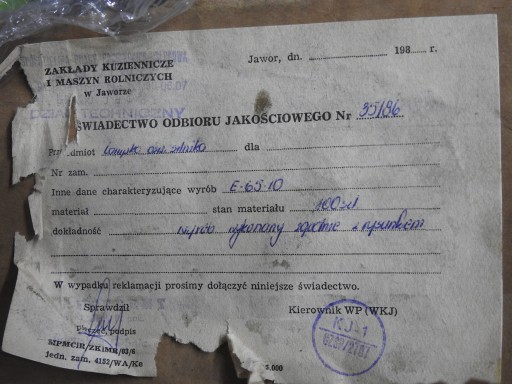 ZAKŁADY KUZIENNICZE
I MASZYN ROLNICZYCH
w Jaworze
Jawor, dn. 198 r.
DZIAŁ TECHNICZNY
ŚWIADECTWO ODBIORU JAKOŚCIOWEGO Nr 35/86
Przedmiot dla
Nr zam.
Inne dane charakteryzujące wyrób E-65-10
materiał stan materiału 100szt
dokładność Wyrób wykonany zgodnie z rysunkiem
W wypadku reklamacji prosimy dołączyć niniejsze świadectwo.
Sprawdził Kierownik WP (WKJ)
KJ-1
podpis
jedn. zam. 4152/WA/Ke